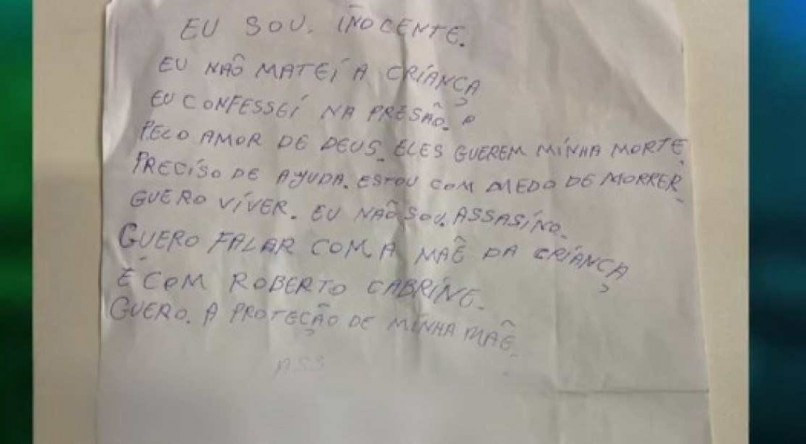 EU SOU. INOCENTE.
EU NÃO MATEI A CRIANÇA
EU CONFESSEI NA PRESÃO. P
PELO AMOR DE DEUS. ELES GUEREM MINHA MORTE.
PRECISO DE AYUDA. ESTOU COM MEDO DE MORRER.
GUERO VIVER. EU NÃO SOU. ASSASINO.
GUERO FALAR COM A MÃE DA CRIANÇA
E COM ROBERTO CABRINE.
GUERO. A PROTEÇÃO DE MINHA MÃE.
ASS